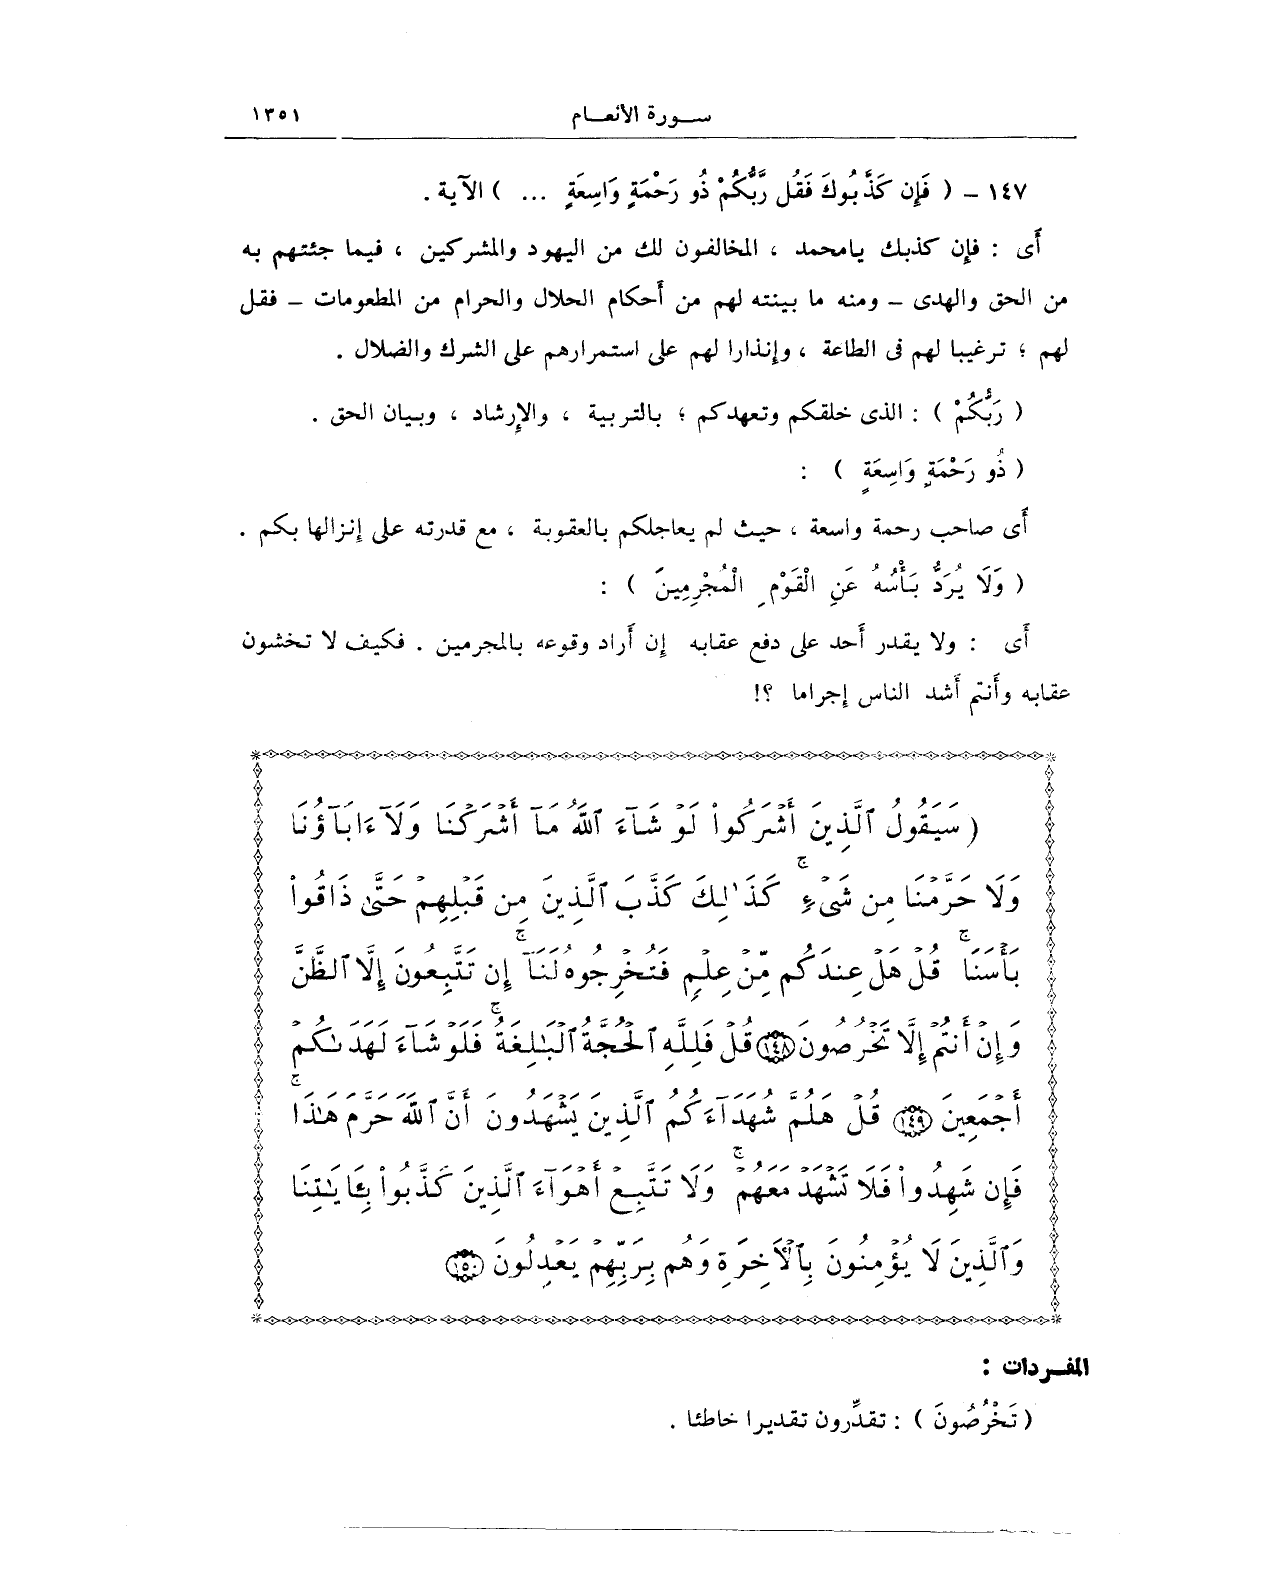 سورة الأنعام ١٣٥١
١٤٧ - ( فَإِن كَذَّبُوكَ فَقُل رَّبُّكُمْ ذُو رَحْمَةٍ وَاسِعَةٍ ... ) الآية .
أَى : فإِن كذبك يامحمد ، المخالفون لك من اليهود والمشركين ، فيما جئتهم به
من الحق والهدى - ومنه ما بينته لهم من أَحكام الحلال والحرام من المطعومات - فقل
لهم ؛ ترغيبا لهم فى الطاعة ، وإِنذارا لهم على استمرارهم على الشرك والضلال .
( رَبُّكُمْ ) : الذى خلقكم وتعهدكم ؛ بالتربية ، والإِرشاد ، وبيان الحق .
( ذُو رَحْمَةٍ وَاسِعَةٍ ) :
أَى صاحب رحمة واسعة ، حيث لم يعاجلكم بالعقوبة ، مع قدرته على إِنزالها بكم .
( وَلَا يُرَدُّ بَأْسُهُ عَنِ الْقَوْمِ الْمُجْرِمِينَ ) :
أَى : ولا يقدر أَحد على دفع عقابه إِن أَراد وقوعه بالمجرمين . فكيف لا تخشون
عقابه وأَنتم أَشد الناس إِجراما ؟!
( سَيَقُولُ ٱلَّذِينَ أَشْرَكُواْ لَوْ شَآءَ ٱللَّهُ مَآ أَشْرَكْنَا وَلَآ ءَابَآؤُنَا
وَلَا حَرَّمْنَا مِن شَىْءٍۚ كَذَٰلِكَ كَذَّبَ ٱلَّذِينَ مِن قَبْلِهِمْ حَتَّىٰ ذَاقُواْ
بَأْسَنَاۚ قُلْ هَلْ عِندَكُم مِّنْ عِلْمٍ فَتُخْرِجُوهُ لَنَآۚ إِن تَتَّبِعُونَ إِلَّا ٱلظَّنَّ
وَإِنْ أَنتُمْ إِلَّا تَخْرُصُونَ ١٤٨ قُلْ فَلِلَّهِ ٱلْحُجَّةُ ٱلْبَٰلِغَةُۚ فَلَوْ شَآءَ لَهَدَىٰكُمْ
أَجْمَعِينَ ١٤٩ قُلْ هَلُمَّ شُهَدَآءَكُمُ ٱلَّذِينَ يَشْهَدُونَ أَنَّ ٱللَّهَ حَرَّمَ هَٰذَاۚ
فَإِن شَهِدُواْ فَلَا تَشْهَدْ مَعَهُمْۚ وَلَا تَتَّبِعْ أَهْوَآءَ ٱلَّذِينَ كَذَّبُواْ بِـَٔايَٰتِنَا
وَٱلَّذِينَ لَا يُؤْمِنُونَ بِٱلْأَخِرَةِ وَهُم بِرَبِّهِمْ يَعْدِلُونَ ١٥٠
المفردات :
( تَخْرُصُونَ ) : تقدِّرون تقديرا خاطئا .